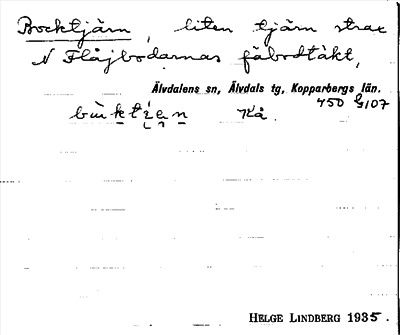 Bocktjärn, liten tjärn strax
N Flåjbodarnas fäbodtäkt,
Älvdalens sn, Älvdals tg, Kopparbergs län.
450 107
Kå.
HELGE LINDBERG 1935.